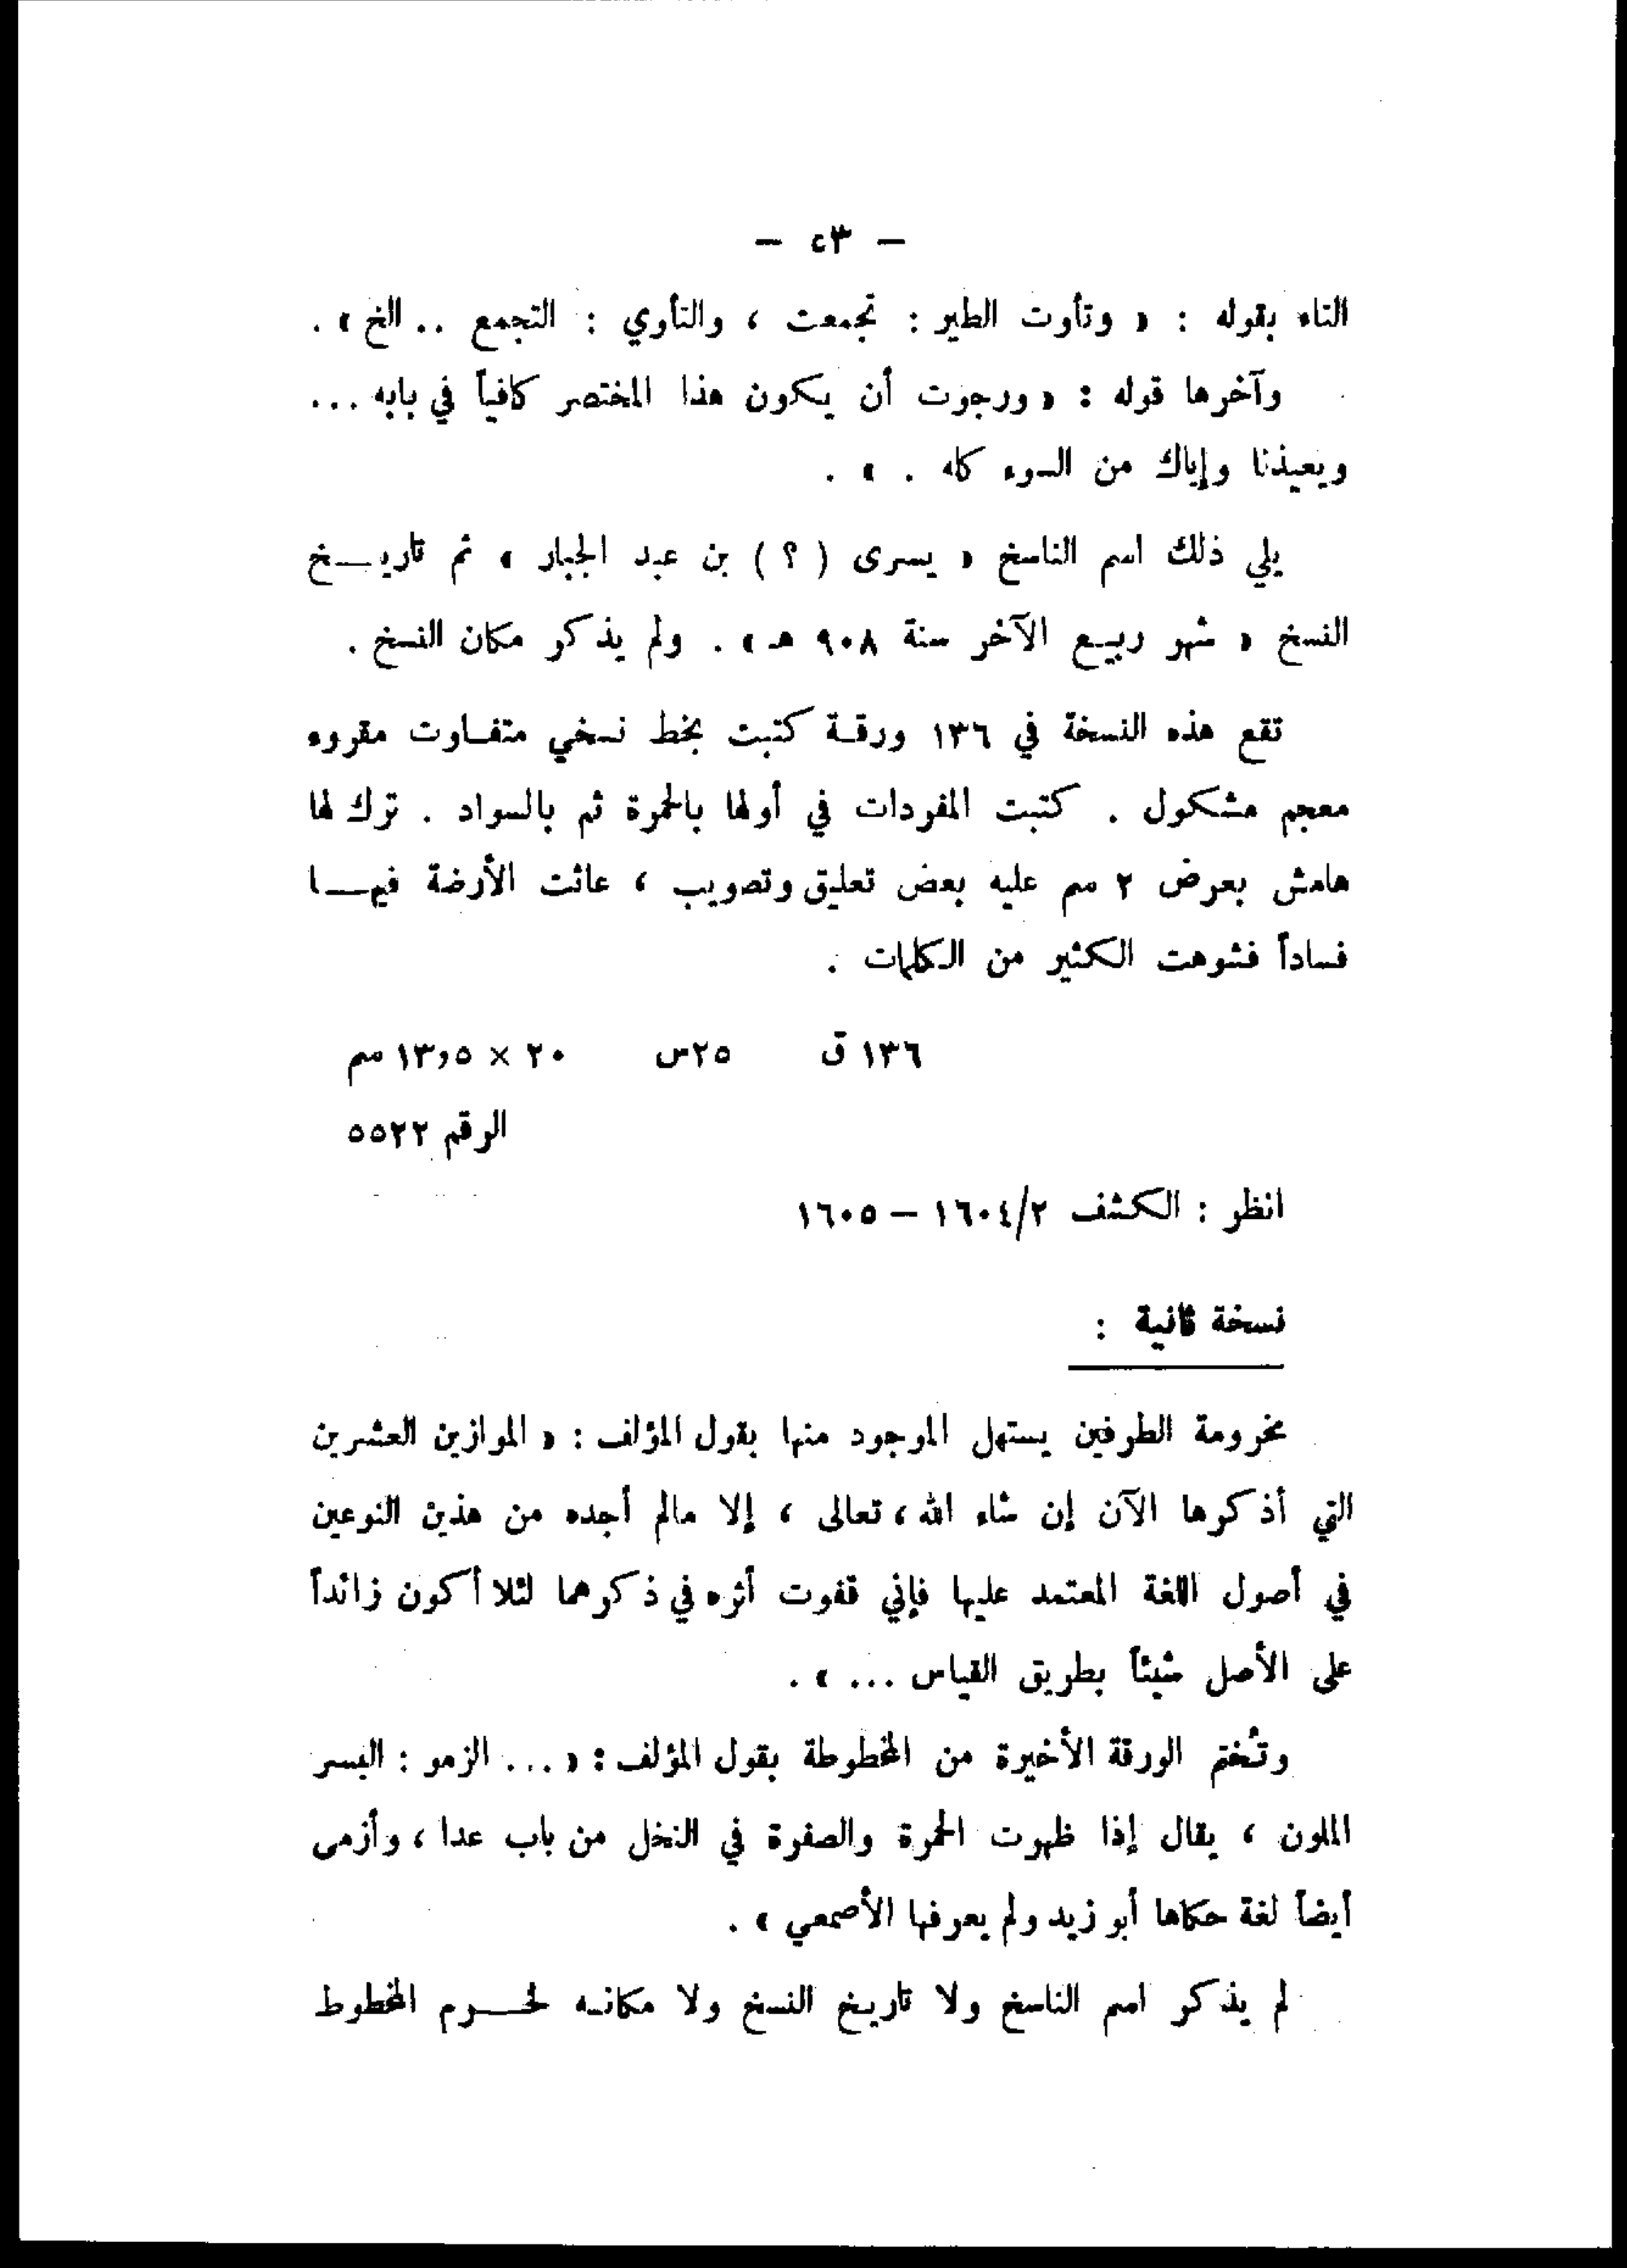 — ٥٣ —
التاء بقوله : « وتأوت الطير : تجمعت ، والتأوي : التجمع .. الخ » .
وآخرها قوله : « ورجوت أن يكون هذا المختصر كافياً في بابه ...
ويعيذنا وإياك من السوء كله . » .
يلي ذلك اسم الناسخ « يسرى ( ؟ ) بن عبد الجبار » ثم تاريخ
النسخ « شهر ربيع الآخر سنة ٩٠٨ هـ » . ولم يذكر مكان النسخ .
تقع هذه النسخة في ١٣٦ ورقة كتبت بخط نسخي متفاوت مقروء
معجم مشكول . كتبت المفردات في أولها بالحمرة ثم بالسواد . ترك لها
هامش بعرض ٢ سم عليه بعض تعليق وتصويب ، عاثت الأرضة فيها
فساداً فشوهت الكثير من الكلمات .
١٣٦ ق ٢٥س ٢٠ × ١٣٫٥ سم
الرقم ٥٥٢٢
انظر : الكشف ١٦٠٤/٢ — ١٦٠٥
نسخة ثانية :
مخرومة الطرفين يستهل الموجود منها بقول المؤلف : « الموازين العشرين
التي أذكرها الآن إن شاء الله ، تعالى ، إلا مالم أجده من هذين النوعين
في أصول اللغة المعتمد عليها فإني قفوت أثره في ذكرهما لئلا أكون زائداً
على الأصل شيئاً بطريق القياس ... » .
وتُختم الورقة الأخيرة من المخطوطة بقول المؤلف : « ... الزهو : البسر
الملون ، يقال إذا ظهرت الحمرة والصفرة في النخل من باب عدا ، وأزهى
أيضاً لغة حكاها أبو زيد ولم يعرفها الأصمعي » .
لم يذكر اسم الناسخ ولا تاريخ النسخ ولا مكانه لخرم المخطوط